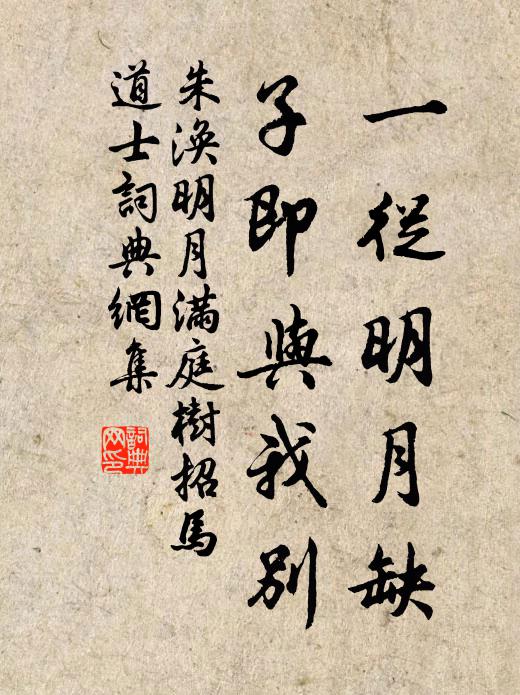 一從明月缺
子即與我別
朱渙明月滿庭樹招馬
道士詞典網集
詞典
网印